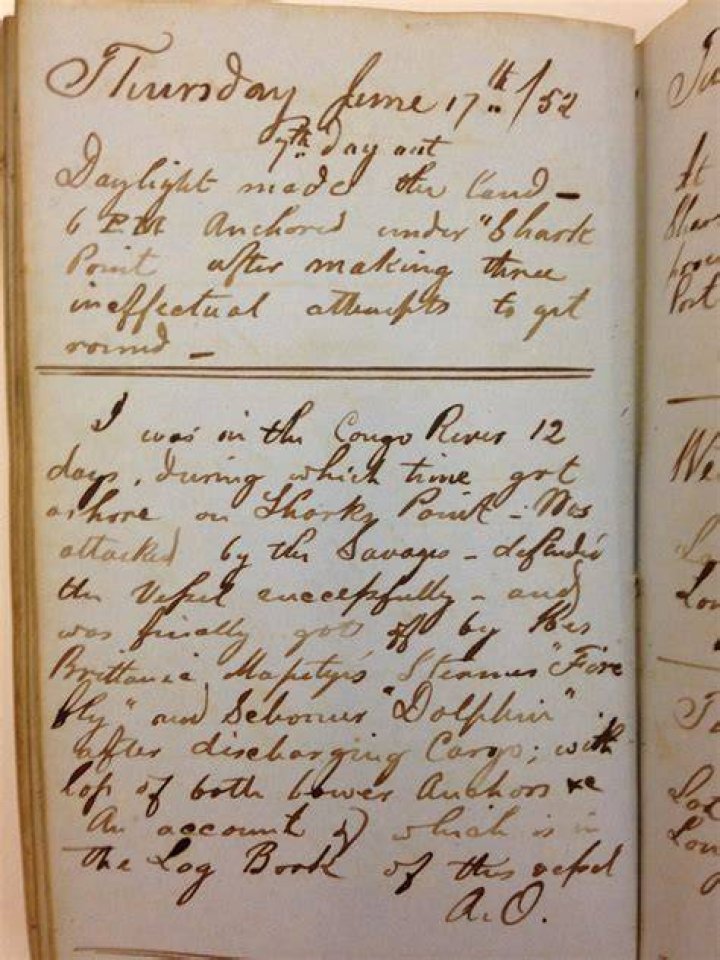 Thursday June 17th/52
7th day out
Daylight made the land –
6 P.M. Anchored under "Shark
Point after making three
ineffectual attempts to get
round –
I was in the Congo River 12
days, during which time got
ashore on Sharks Point – Was
attacked by the Savages – defended
the Vessel successfully – and
was finally got off by Her
Brittanic Majestys Steamer "Fire
fly" and Schooner "Dolphin"
after discharging Cargo; with
loss of both bower Anchors &c
An account of which is in
the Log Book of this vessel
A.O.
We